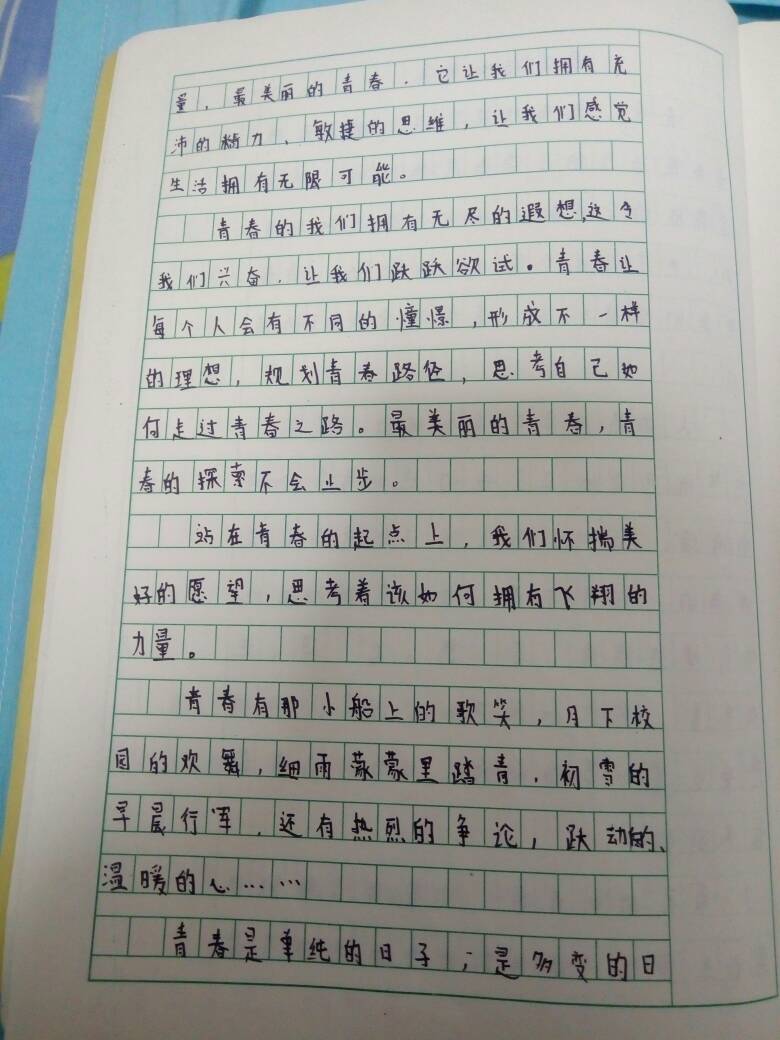 量，最美丽的青春．它让我们拥有充
沛的精力、敏捷的思维，让我们感觉
生活拥有无限可能。
青春的我们拥有无尽的遐想，这令
我们兴奋．让我们跃跃欲试。青春让
每个人会有不同的憧憬，形成不一样
的理想，规划青春路径，思考自己如
何走过青春之路。最美丽的青春，青
春的探索不会止步。
站在青春的起点上，我们怀揣美
好的愿望，思考着该如何拥有飞翔的
力量。
青春有那小船上的歌笑，月下校
园的欢舞，细雨蒙蒙里踏青．初雪的
早晨行军，还有热烈的争论，跃动的、
温暖的心……
青春是单纯的日子；是多变的日